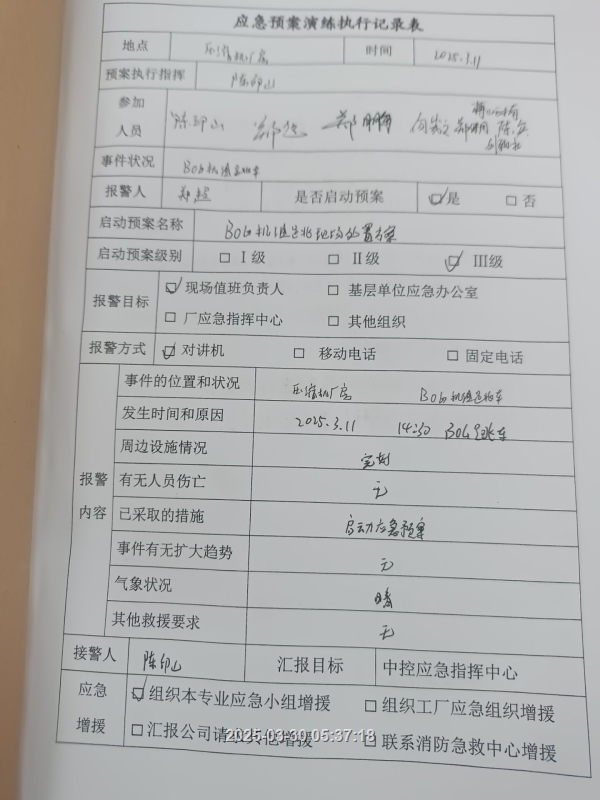 应急预案演练执行记录表
地点 压缩机厂房 时间 2025.3.11
预案执行指挥 陈印山
参加人员 陈印山 郑超 郑明
事件状况 BOG机
报警人 郑超 是否启动预案 ☑是 □否
启动预案名称 BOG机 现场处置方案
启动预案级别 □ I级 □ II级 ☑ III级
报警目标 ☑现场值班负责人 □ 基层单位应急办公室
□ 厂应急指挥中心 □ 其他组织
报警方式 ☑对讲机 □ 移动电话 □ 固定电话
报警内容
事件的位置和状况 压缩机厂房 BOG机
发生时间和原因 2025.3.11 14:30 BOG 跳车
周边设施情况 完好
有无人员伤亡 无
已采取的措施 启动应急预案
事件有无扩大趋势 无
气象状况 晴
其他救援要求 无
接警人 陈印山 汇报目标 中控应急指挥中心
应急增援 ☑组织本专业应急小组增援 □组织工厂应急组织增援
□汇报公司请求其他增援 □联系消防急救中心增援
2025-03-30 05:37:18